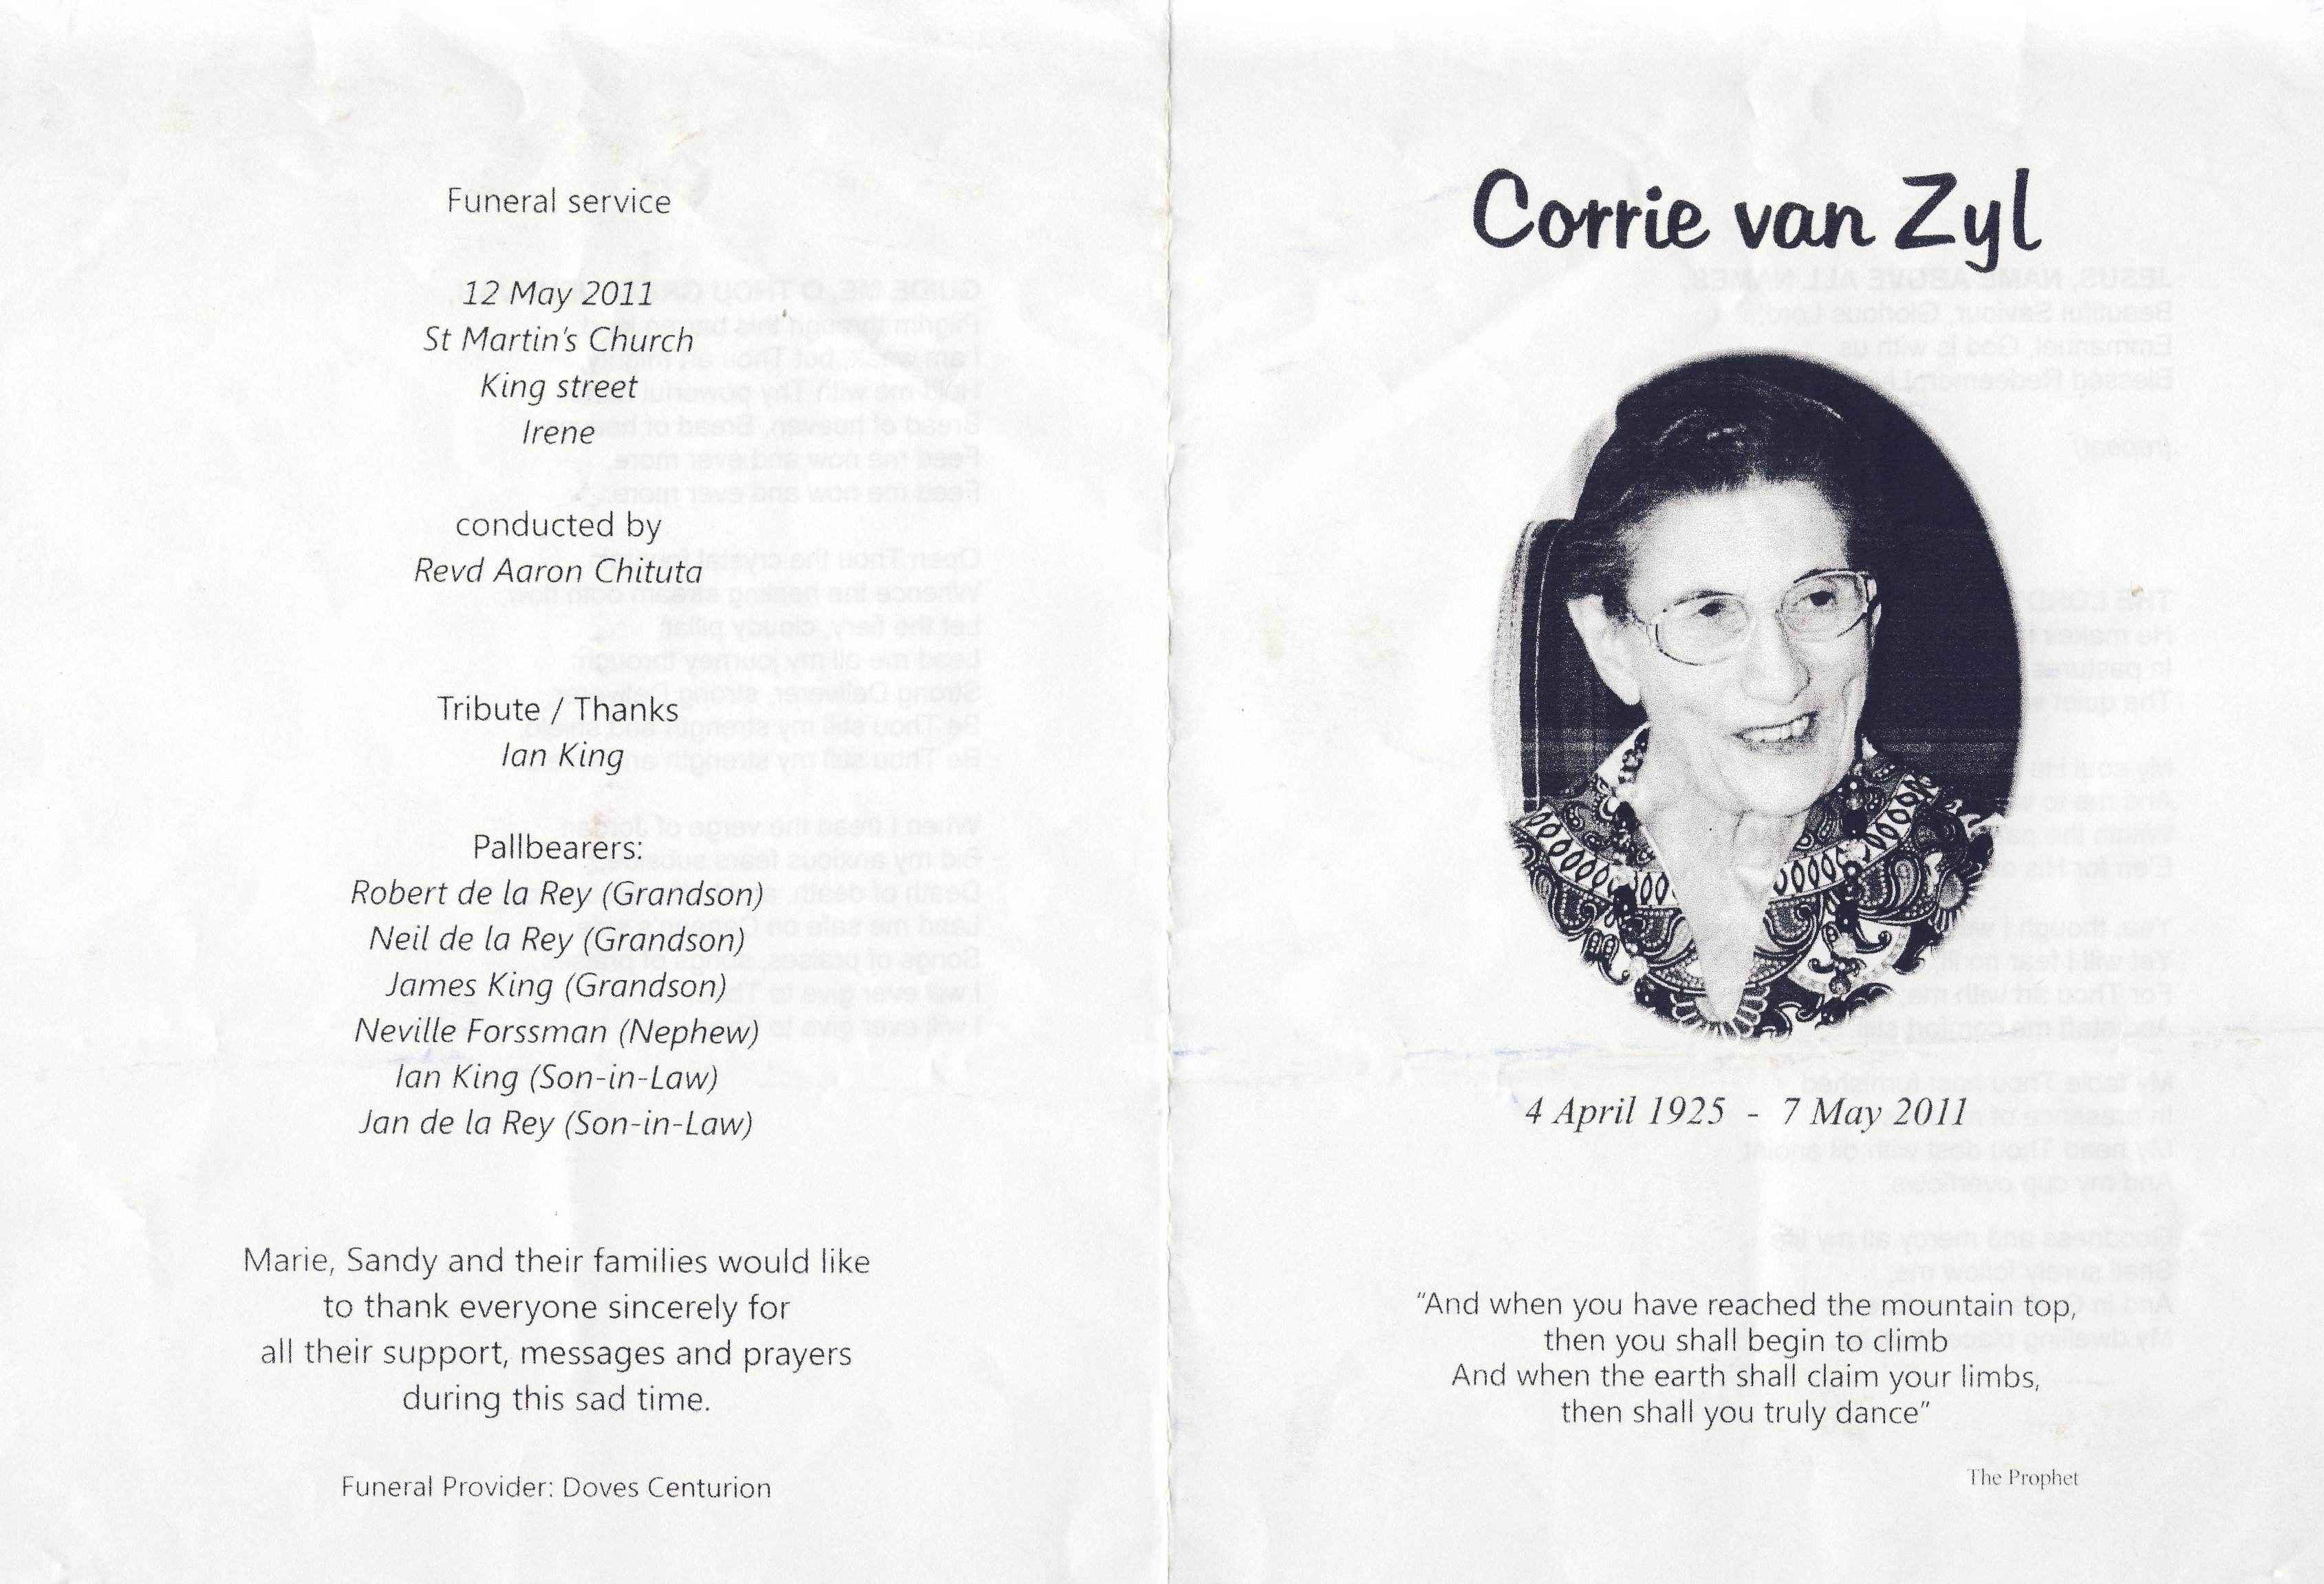 Funeral service
12 May 2011
St Martin's Church
King street
Irene
conducted by
Revd Aaron Chituta
Tribute / Thanks
Ian King
Pallbearers:
Robert de la Rey (Grandson)
Neil de la Rey (Grandson)
James King (Grandson)
Neville Forssman (Nephew)
Ian King (Son-in-Law)
Jan de la Rey (Son-in-Law)
Marie, Sandy and their families would like
to thank everyone sincerely for
all their support, messages and prayers
during this sad time.
Funeral Provider: Doves Centurion
Corrie van Zyl
4 April 1925 - 7 May 2011
“And when you have reached the mountain top,
then you shall begin to climb
And when the earth shall claim your limbs,
then shall you truly dance”
The Prophet